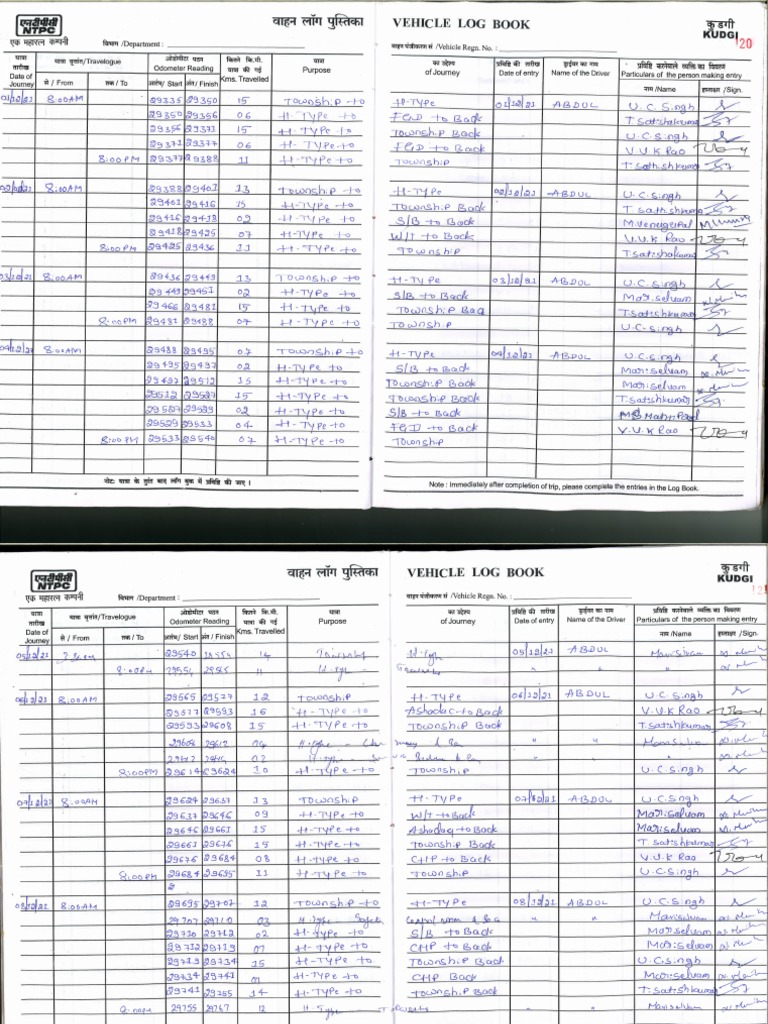 एनटीपीसी
NTPC
एक महारत्न कम्पनी
वाहन लॉग पुस्तिका VEHICLE LOG BOOK
कुडगी
KUDGI
120
विभाग /Department : वाहन पंजीकरण सं /Vehicle Regn. No. :
यात्रा तारीख Date of Journey
यात्रा वृत्तांत/Travelogue
से / From तक / To
ओडोमीटर पठन Odometer Reading
आरंभ/ Start अंत / Finish
कितने कि.मी. यात्रा की गई Kms. Travelled
यात्रा Purpose
का उद्देश्य of Journey
प्रविष्टि की तारीख Date of entry
ड्राईवर का नाम Name of the Driver
प्रविष्टि करनेवाले व्यक्ति का विवरण
Particulars of the person making entry
नाम /Name हस्ताक्षर /Sign.
01/12/21 8:00AM 29335 29350 15 Township to H-Type 01/12/21 ABDUL U.C.Singh
29350 29356 06 H-Type to FGD to Back T.Satishkumar
29356 29371 15 H-Type to Township to Back U.C.Singh
29371 29377 06 H-Type to FGD to Back V.V.K Rao
8:00PM 29377 29388 11 H-Type to Township T.Sathishkumar
02/12/21 8:00AM 29388 29401 13 Township to H-Type 02/12/21 ABDUL U.C.Singh
29401 29416 15 H-Type to Township Back T.Sathishkumar
29416 29418 02 H-Type to S/B to Back M.Venugopal
29418 29425 07 H-Type to W/T to Back V.V.K Rao
8:00PM 29425 29436 11 H-Type to Township T.Satishkumar
03/12/21 8:00AM 29436 29449 13 Township to H-Type 03/12/21 ABDUL U.C.Singh
29449 29451 02 H-Type to S/B to Back Mariselvam
29466 29481 15 H-Type to Township Bac T.Satishkumar
8:00PM 29481 29488 07 H-Type to Township U.C.Singh
04/12/21 8:00AM 29488 29495 07 Township to H-Type 04/12/21 ABDUL U.C.Singh
29495 29497 02 H-Type to S/B to Back Mariselvam
29497 29512 15 H-Type to Township Back Mariselvam
29512 29527 15 H-Type to Township to Back T.Satishkumar
29527 29529 02 H-Type to S/B to Back
29529 29533 04 H-Type to FGD to Back V.V.K Rao
8:00PM 29533 29540 07 H-Type to Township
नोट: यात्रा के तुरंत बाद लॉग बुक में प्रविष्टि की जाए । Note : Immediately after completion of trip, please complete the entries in the Log Book.
एनटीपीसी
NTPC
एक महारत्न कम्पनी
वाहन लॉग पुस्तिका VEHICLE LOG BOOK
कुडगी
KUDGI
121
विभाग /Department : वाहन पंजीकरण सं /Vehicle Regn. No. :
यात्रा तारीख Date of Journey
यात्रा वृत्तांत/Travelogue
से / From तक / To
ओडोमीटर पठन Odometer Reading
आरंभ/ Start अंत / Finish
कितने कि.मी. यात्रा की गई Kms. Travelled
यात्रा Purpose
का उद्देश्य of Journey
प्रविष्टि की तारीख Date of entry
ड्राईवर का नाम Name of the Driver
प्रविष्टि करनेवाले व्यक्ति का विवरण
Particulars of the person making entry
नाम /Name हस्ताक्षर /Sign.
05/12/21 29540 29554 14 Township H-Type 05/12/21 ABDUL Mariselvam
8:00PM 29554 29565 11 H-Type Township " "
06/12/21 8:00AM 29565 29577 12 Township H-Type 06/12/21 ABDUL U.C.Singh
29577 29593 16 H-Type to Ashadic to Back V.V.K Rao
29593 29608 15 H-Type to Township Back T.Satishkumar
29608 29612 04 H-Type " " Mariselvam
29612 02 H-Type " "
8:00PM 29614 29624 10 H-Type to Township U.C.Singh
07/12/21 8:00AM 29624 29637 13 Township H-Type 07/12/21 ABDUL U.C.Singh
29637 29646 09 H-Type to W/T to Back Mariselvam
29646 29661 15 H-Type to Ashadaq to Back Mariselvam
29661 29676 15 H-Type to Township Back T.Satishkumar
29676 29684 08 H-Type to CHP to Back V.V.K Rao
8:00PM 29684 29695 11 H-Type to Township U.C.Singh
08/12/21 8:00AM 29695 29707 12 Township to H-Type 08/12/21 ABDUL U.C.Singh
29707 29710 03 H-Type " " Mariselvam
29710 29712 02 H-Type to S/B to Back Mariselvam
29712 29719 07 H-Type to CHP to Back Mariselvam
29719 29734 15 H-Type to Township to Back U.C.Singh
29734 29741 07 H-Type to CHP Back Mariselvam
29741 29755 14 H-Type to Township Back T.Satishkumar
29755 29767 12 H-Type Township " " Mariselvam